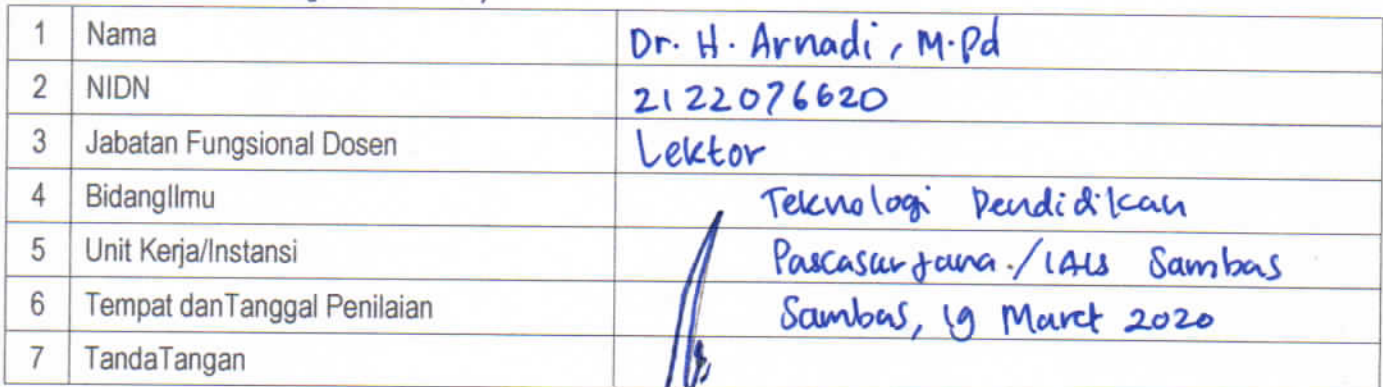 1 Nama Dr. H. Arnadi, M.Pd
2 NIDN 2122076620
3 Jabatan Fungsional Dosen Lektor
4 BidangIlmu Teknologi Pendidikan
5 Unit Kerja/Instansi Pascasarjana./IAIS Sambas
6 Tempat danTanggal Penilaian Sambas, 19 Maret 2020
7 TandaTangan